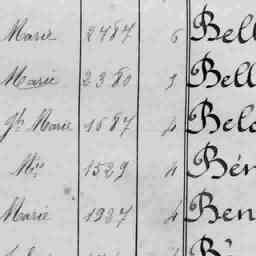 Marie 2787 6 Bell
Marie 2380 3 Bell
Ph Marie 1687 4 Belo
Mie 1529 4 Bér
Marie 1927 4 Ben